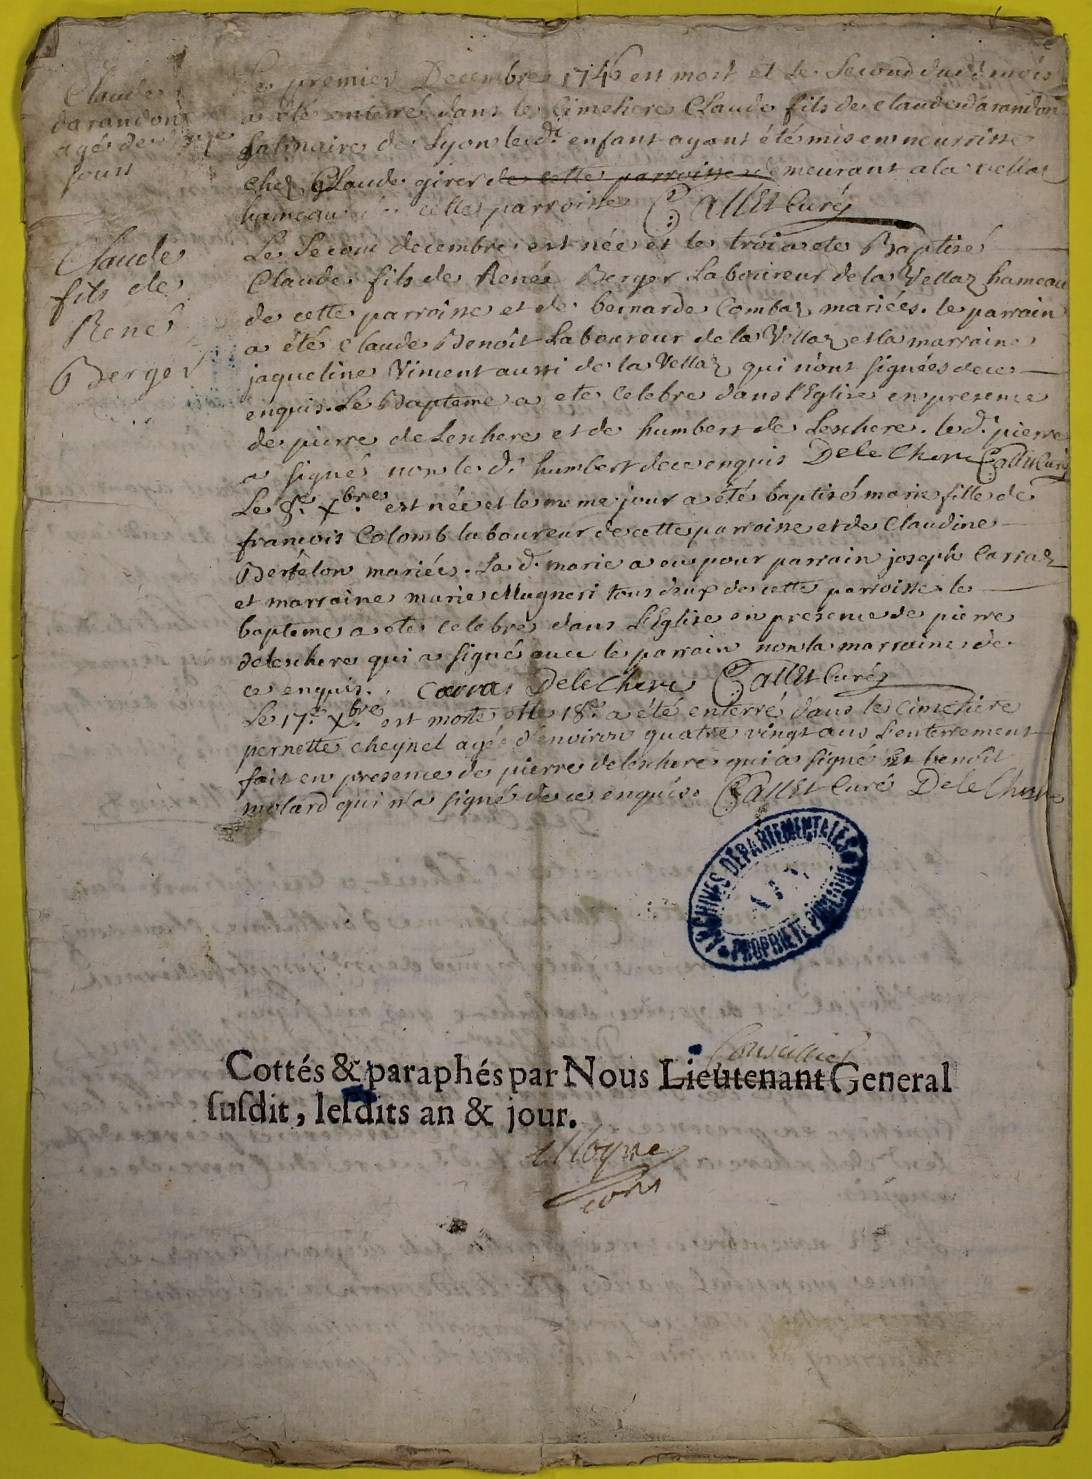 Claude
darandon
agés de
jours
Le premier Decembre 1746 est mort et le Second dud. mois
a été enterré dans le Cimetiere Claude fils de Claude darandon
Satinaire de Lyon led.t enfant ayant été mis en nourrisse
chez Claude girer de cette parroisse demeurant a la vellaz
hameau cette parroisse Gallet Curé
Claude
fils de
René
Berger
Le Second decembre est née et le trois a ete Baptisé
Claude fils de René Berger Laboureur de la Vellaz hameau
de cette parroisse et de bernarde Combaz mariées. le parrain
a été Claude Benoit Laboureur de la Vellaz et la marraine
jaqueline Viment aussi de la Vellaz qui n'ont signées de ce
enquis. Le Bapteme a ete Celebre dans l'Eglise en presence
de pierre de Leschere et de humbert de Leschere. le d. pierre
a signés non le d. humbert de ce enquis DeleChere Gallet Curé
Le 8.e Xbre est née et le meme jour a été baptisé marie fille de
francois Colomb laboureur de cette parroisse et de Claudine
Bertelon mariés. La d. marie a eu pour parrain joseph Carraz
et marraine marie Mugneri tous deux de cette parroisse le
bapteme a ete celebré dans L'Eglise en presence de pierre
deleschere qui a signé avec le parrain non la marraine de
ce enquis. Carraz DeleChere Gallet Curé
Le 17.e Xbre est morte et le 18.e a été enterré dans le Cimetiere
pernette cheynel agée d'environ quatre vingt ans L'enterrement
fait en presence de pierre deleschere qui a signé Et benoît
molard qui n'a signé de ce enquis. Gallet Curé DeleChere
ARCHIVES DÉPARTEMENTALES
AIN
PROPRIÉTÉ PUBLIQUE
Conseillier
Cottés & paraphés par Nous Lieutenant General
susdit, lesdits an & jour.